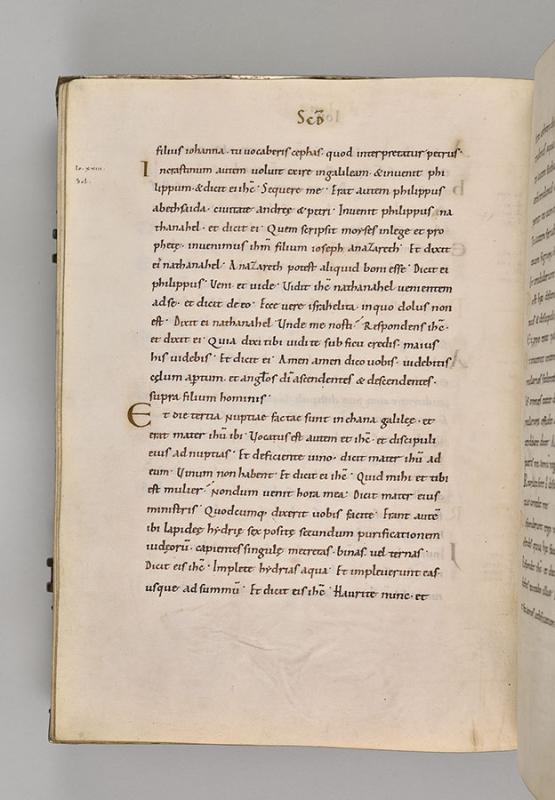 Scd̄
filius iohanna · tu vocaberis cephas · quod interpretatur petrus ·
In crastinum autem voluit exire in galileam · & invenit phi
lippum · & dicit ei ihc̄ · Sequere me · Erat autem philippus
a bethsaida · civitate andreę & petri · Invenit philippus na
thanahel · et dicit ei · Quem scripsit moyses in lege et pro
phetę · invenimus ihm̄ filium ioseph a nazareth · Et dixit
ei nathanahel · A nazareth potest aliquid boni esse · Dicit ei
philippus · Veni et vide · Vidit ihc̄ nathanahel venientem
ad se · et dicit de eo · Ecce vere israhelita · in quo dolus non
est · Dixit ei nathanahel · Unde me nosti · Respondens ihc̄ ·
et dixit ei · Quia dixi tibi vidi te sub ficu credis · maius
his videbis · Et dicit ei · Amen amen dico vobis · videbitis
cęlum aptum · et anglos di ascendentes & descendentes ·
supra filium hominis ·
Et die tertia nuptiae factae sunt in chana galileę · et
erat mater ihū ibi · Vocatus est autem et ihc̄ · et discipuli
eius ad nuptias · Et deficiente vino · dicit mater ihū ad
eum · Vinum non habent · Et dicit ei ihc̄ · Quid mihi et tibi
est mulier · Nondum venit hora mea · Dicit mater eius
ministris · Quodcumq; dixerit vobis facite · Erant autē
ibi lapideę hydrię sex positę secundum purificationem
iudeorū · capientes singulę metretas · binas vel ternas ·
Dicit eis ihc̄ · Implete hydrias aqua · Et impleverunt eas
usque ad summū · Et dicit eis ihc̄ · Haurite nunc · et